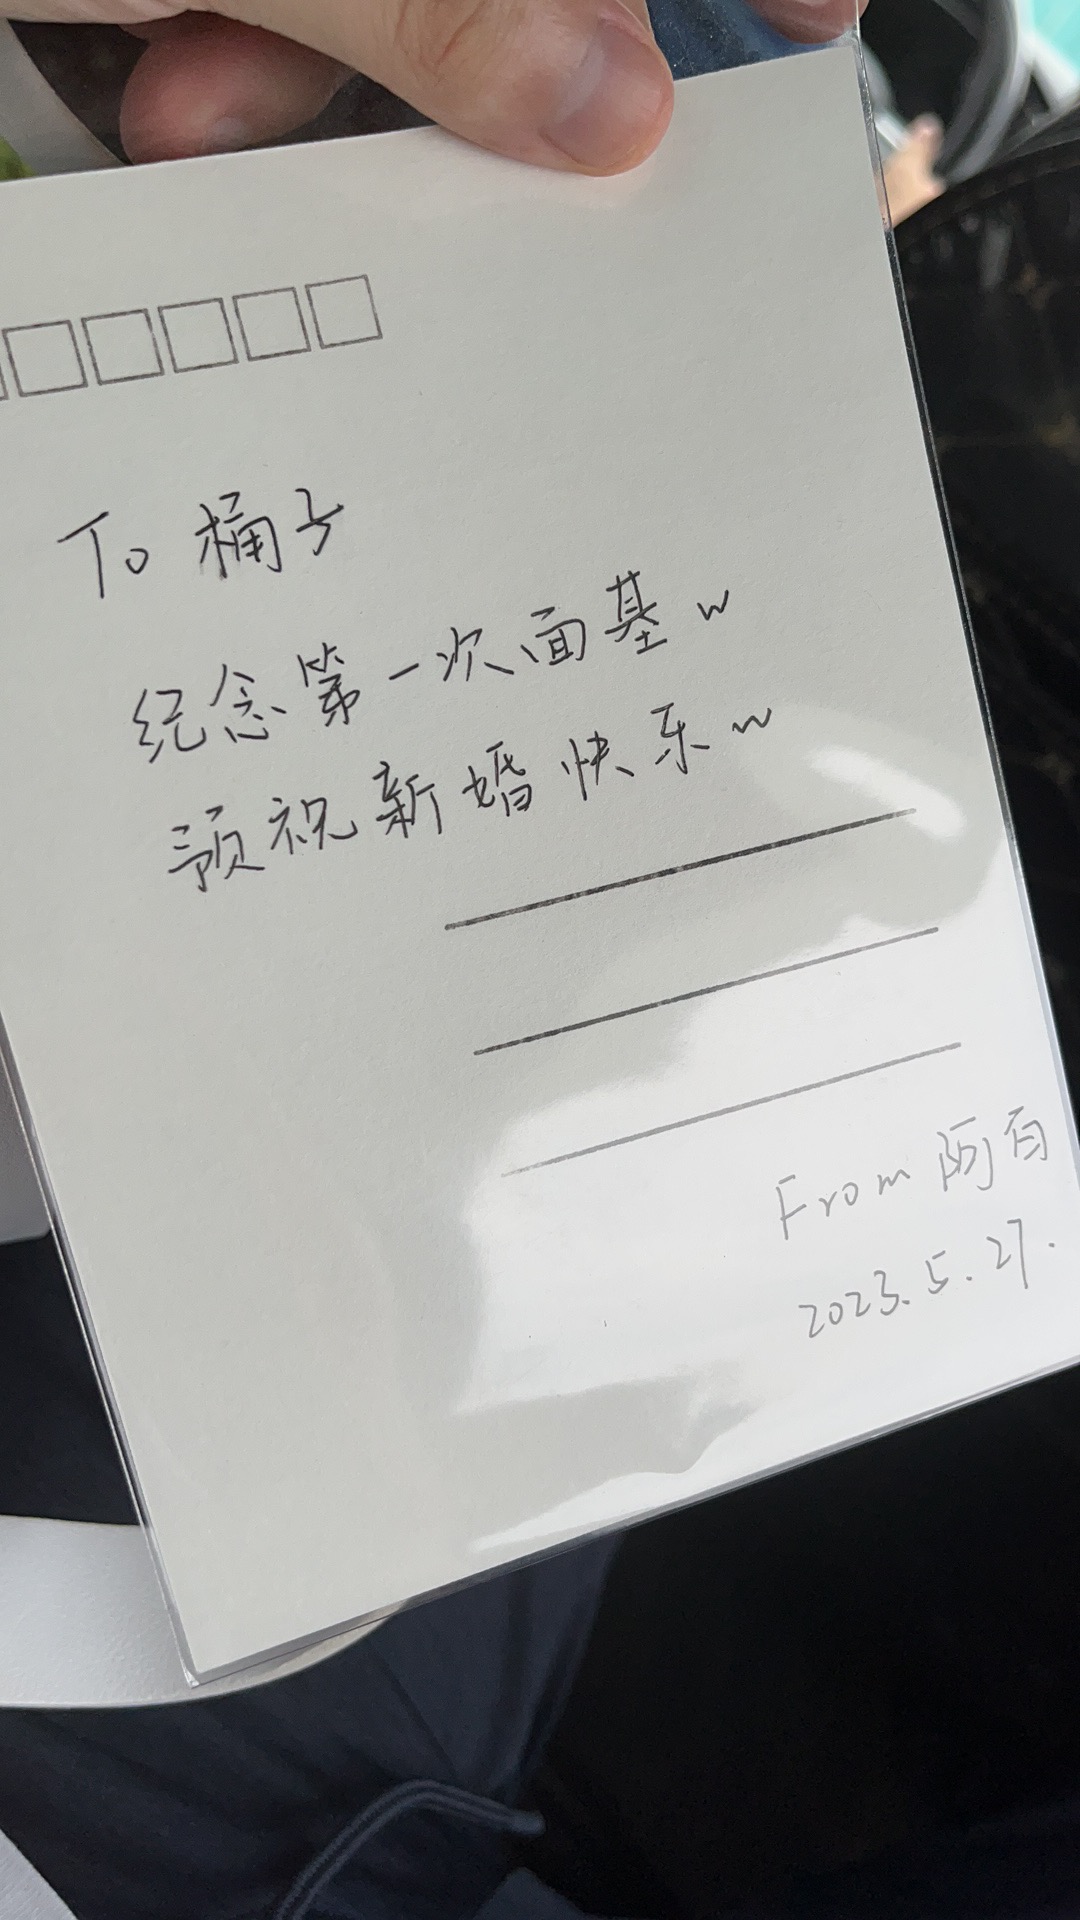 To 桶子
纪念第一次面基w
预祝新婚快乐w
From 阿百
2023.5.27.